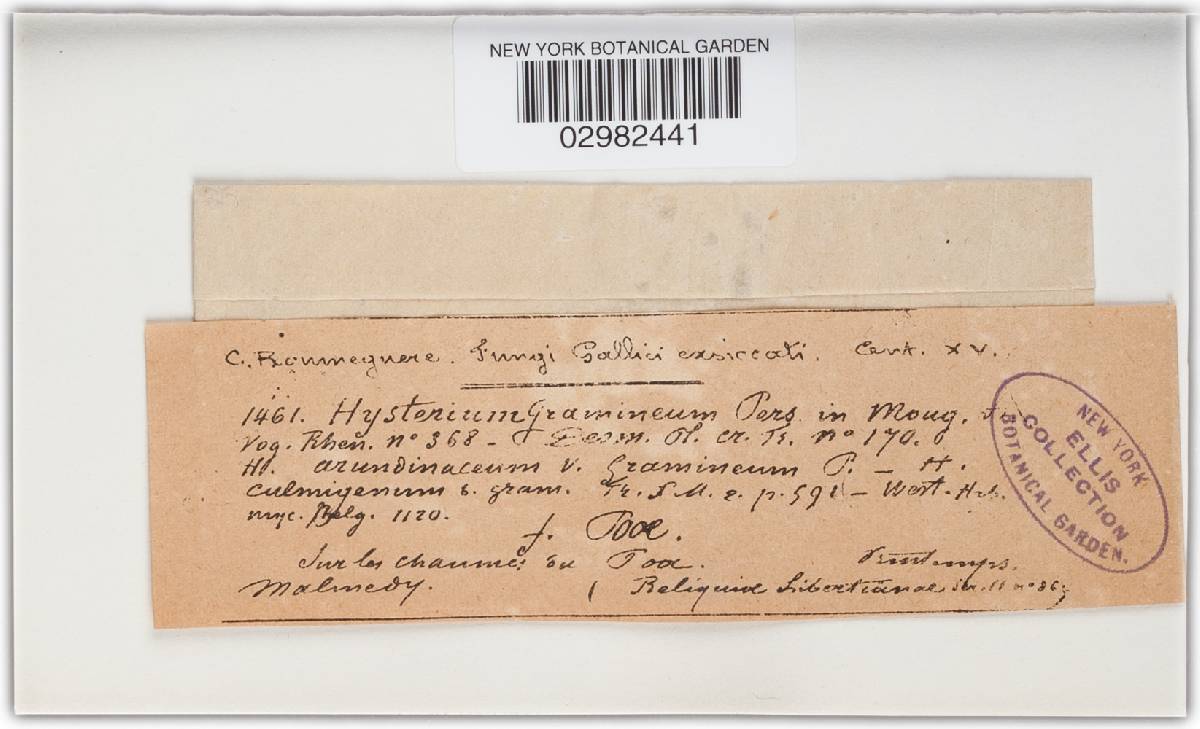 NEW YORK BOTANICAL GARDEN
02982441
C. Roumeguere. Fungi Gallici exsiccati. Cent. XV.
1461. Hysterium Gramineum Pers in Moug.
Vog. Rhen. nº 368 - Desm. Pl. cr. Fr. nº 170.
H. arundinaceum v. Gramineum P. - H.
culmigenum b. gram. Fr. S.M. 2. p. 591 - West. Hrb.
myc. Belg. 1120.
f. Poæ.
Sur les chaumes du Poa. Printemps.
Malmedy. ( Reliquiæ Libertianae
NEW YORK
ELLIS
COLLECTION
BOTANICAL GARDEN.